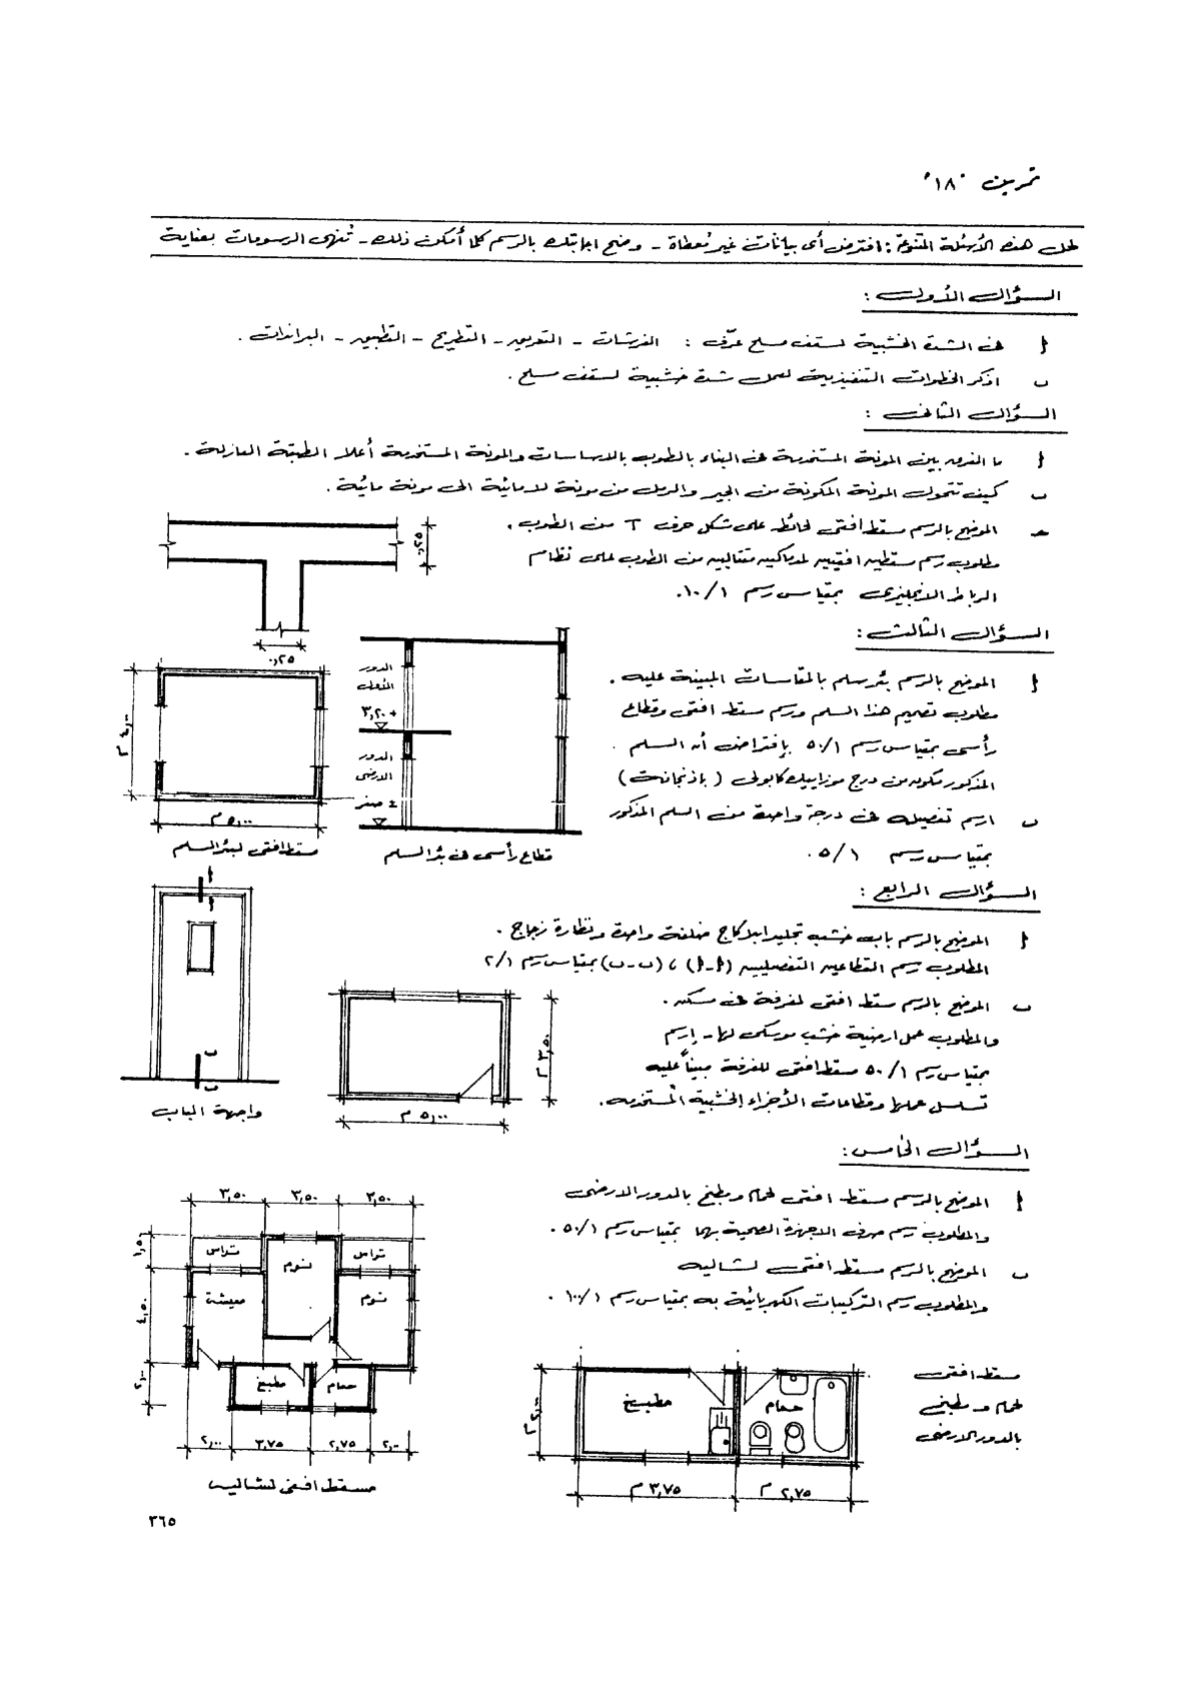 تمرين "١٨"
لحل هذه الأسئلة المتنوعة : افترض أى بيانات غير مُعطاة - وضح اجابتك بالرسم كلما أمكن ذلك - تُنهى الرسومات بعناية
السؤال الأول :
أ فى الشدة الخشبية لسقف مسلح عرّف : الفرشات - التعريق - التطريح - التطبيق - البراندات .
ب اذكر الخطوات التنفيذية لعمل شدة خشبية لسقف مسلح .
السؤال الثانى :
أ ما الفرق بين المونة المستخدمة فى البناء بالطوب بالاساسات والمونة المستخدمة أعلا الطبقة العازلة .
ب كيف تتحول المونة المكونة من الجير والرمل من مونة لا مائية الى مونة مائية .
حـ الموضح بالرسم مسقط افقى لحائط على شكل حرف T من الطوب .
مطلوب رسم مسقطين افقيين لمدماكين متتاليين من الطوب على نظام
الرباط الانجليزى بمقياس رسم ١/١٠.
٠,٢٥
٠,٢٥
السؤال الثالث :
أ الموضح بالرسم بئر سلم بالمقاسات المبينة عليه .
مطلوب تصميم هذا السلم ورسم مسقط افقى وقطاع
رأسى بمقياس رسم ١/٥٠ بإفتراض أن السلم
المذكور مكون من درج موزاييك كابولى ( باذنجانة )
ب ارسم تفصيلة فى درجة واحدة من السلم المذكور
بمقياس رسم ١/٥.
الدور
الأول
+ ٣,٢٠
الدور
الارضى
± صفر
٤,٠٠ م
٥,٠٠ م
مسقط افقى لبئر السلم
قطاع رأسى فى بئر السلم
السؤال الرابع :
أ الموضح بالرسم باب خشب تجليد ابلاكاج ضلفة واحدة ونظارة زجاج .
المطلوب رسم القطاعين التفصيليين (أ-أ) ، (ب-ب) بمقياس رسم ١/٢
ب الموضح بالرسم مسقط افقى لغرفة فى مسكن .
والمطلوب عمل ارضية خشب موسكى لها - إرسم
بمقياس رسم ١/٥٠ مسقط افقى للغرفة مبيناً عليه
تسلسل عملها وقطاعات الأجزاء الخشبية المُستخدمه .
أ
أ
ب
ب
واجهة الباب
٣,٥٠ م
٥,٠٠ م
السؤال الخامس :
أ الموضح بالرسم مسقط افقى لحمام ومطبخ بالدور الارضى
والمطلوب رسم صرف الاجهزة الصحية بهما بمقياس رسم ١/٥٠ .
ب الموضح بالرسم مسقط افقى لشاليه
والمطلوب رسم التركيبات الكهربائية به بمقياس رسم ١/١٠٠ .
٣,٥٠ ٣,٥٠ ٣,٥٠
١,٥٠
٤,٥٠
٢,٠٠
تراس
نوم
تراس
معيشة
نوم
مطبخ
حمام
٢,٠٠ ٣,٧٥ ٢,٧٥ ٢,٠٠
مسقط افقى لشاليه
مسقط افقى
لحمام ومطبخ
بالدور الارضى
مطبخ
حمام
٢,٠٠ م
٣,٧٥ م
٢,٧٥ م
٣٦٥